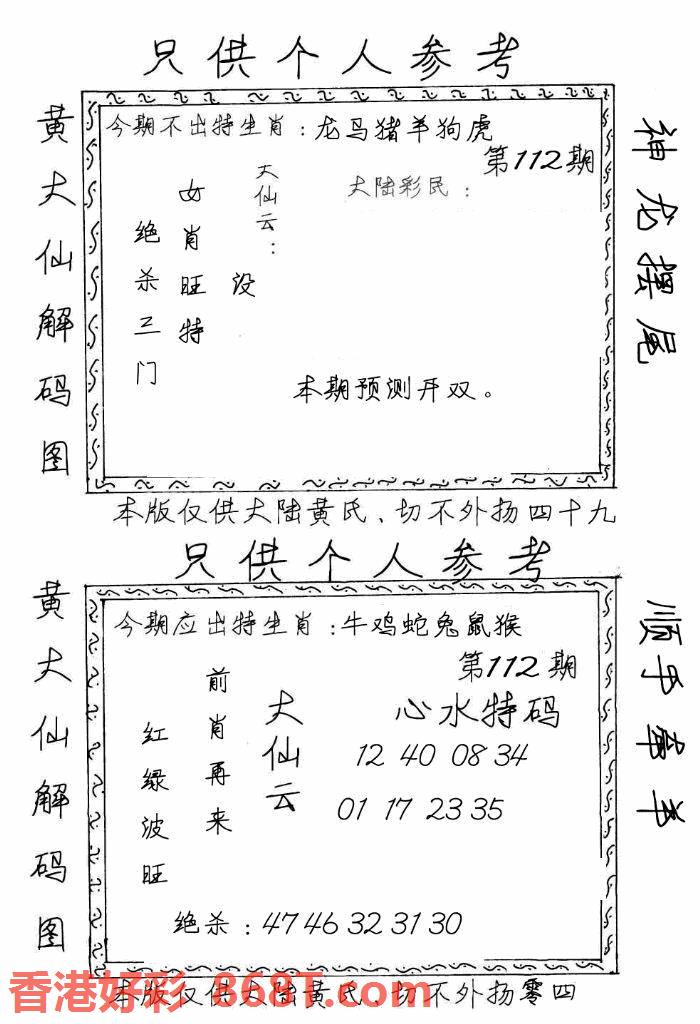 只供个人参考
黄大仙解码图
今期不出特生肖：龙马猪羊狗虎
第112期
大仙云：
大陆彩民：
女肖旺特
设
绝杀三门
本期预测开双。
神龙摆尾
本版仅供大陆黄氏、切不外扬四十九
只供个人参考
黄大仙解码图
今期应出特生肖：牛鸡蛇兔鼠猴
第112期
前肖再来
大仙云
心水特码
红绿波旺
12 40 08 34
01 17 23 35
绝杀：47 46 32 31 30
顺手牵羊
香港好彩 868T.com
本版仅供大陆黄氏、切不外扬零四